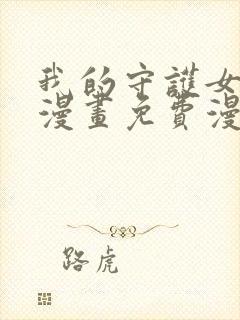 我的守護女
漫畫免費漫
路虎